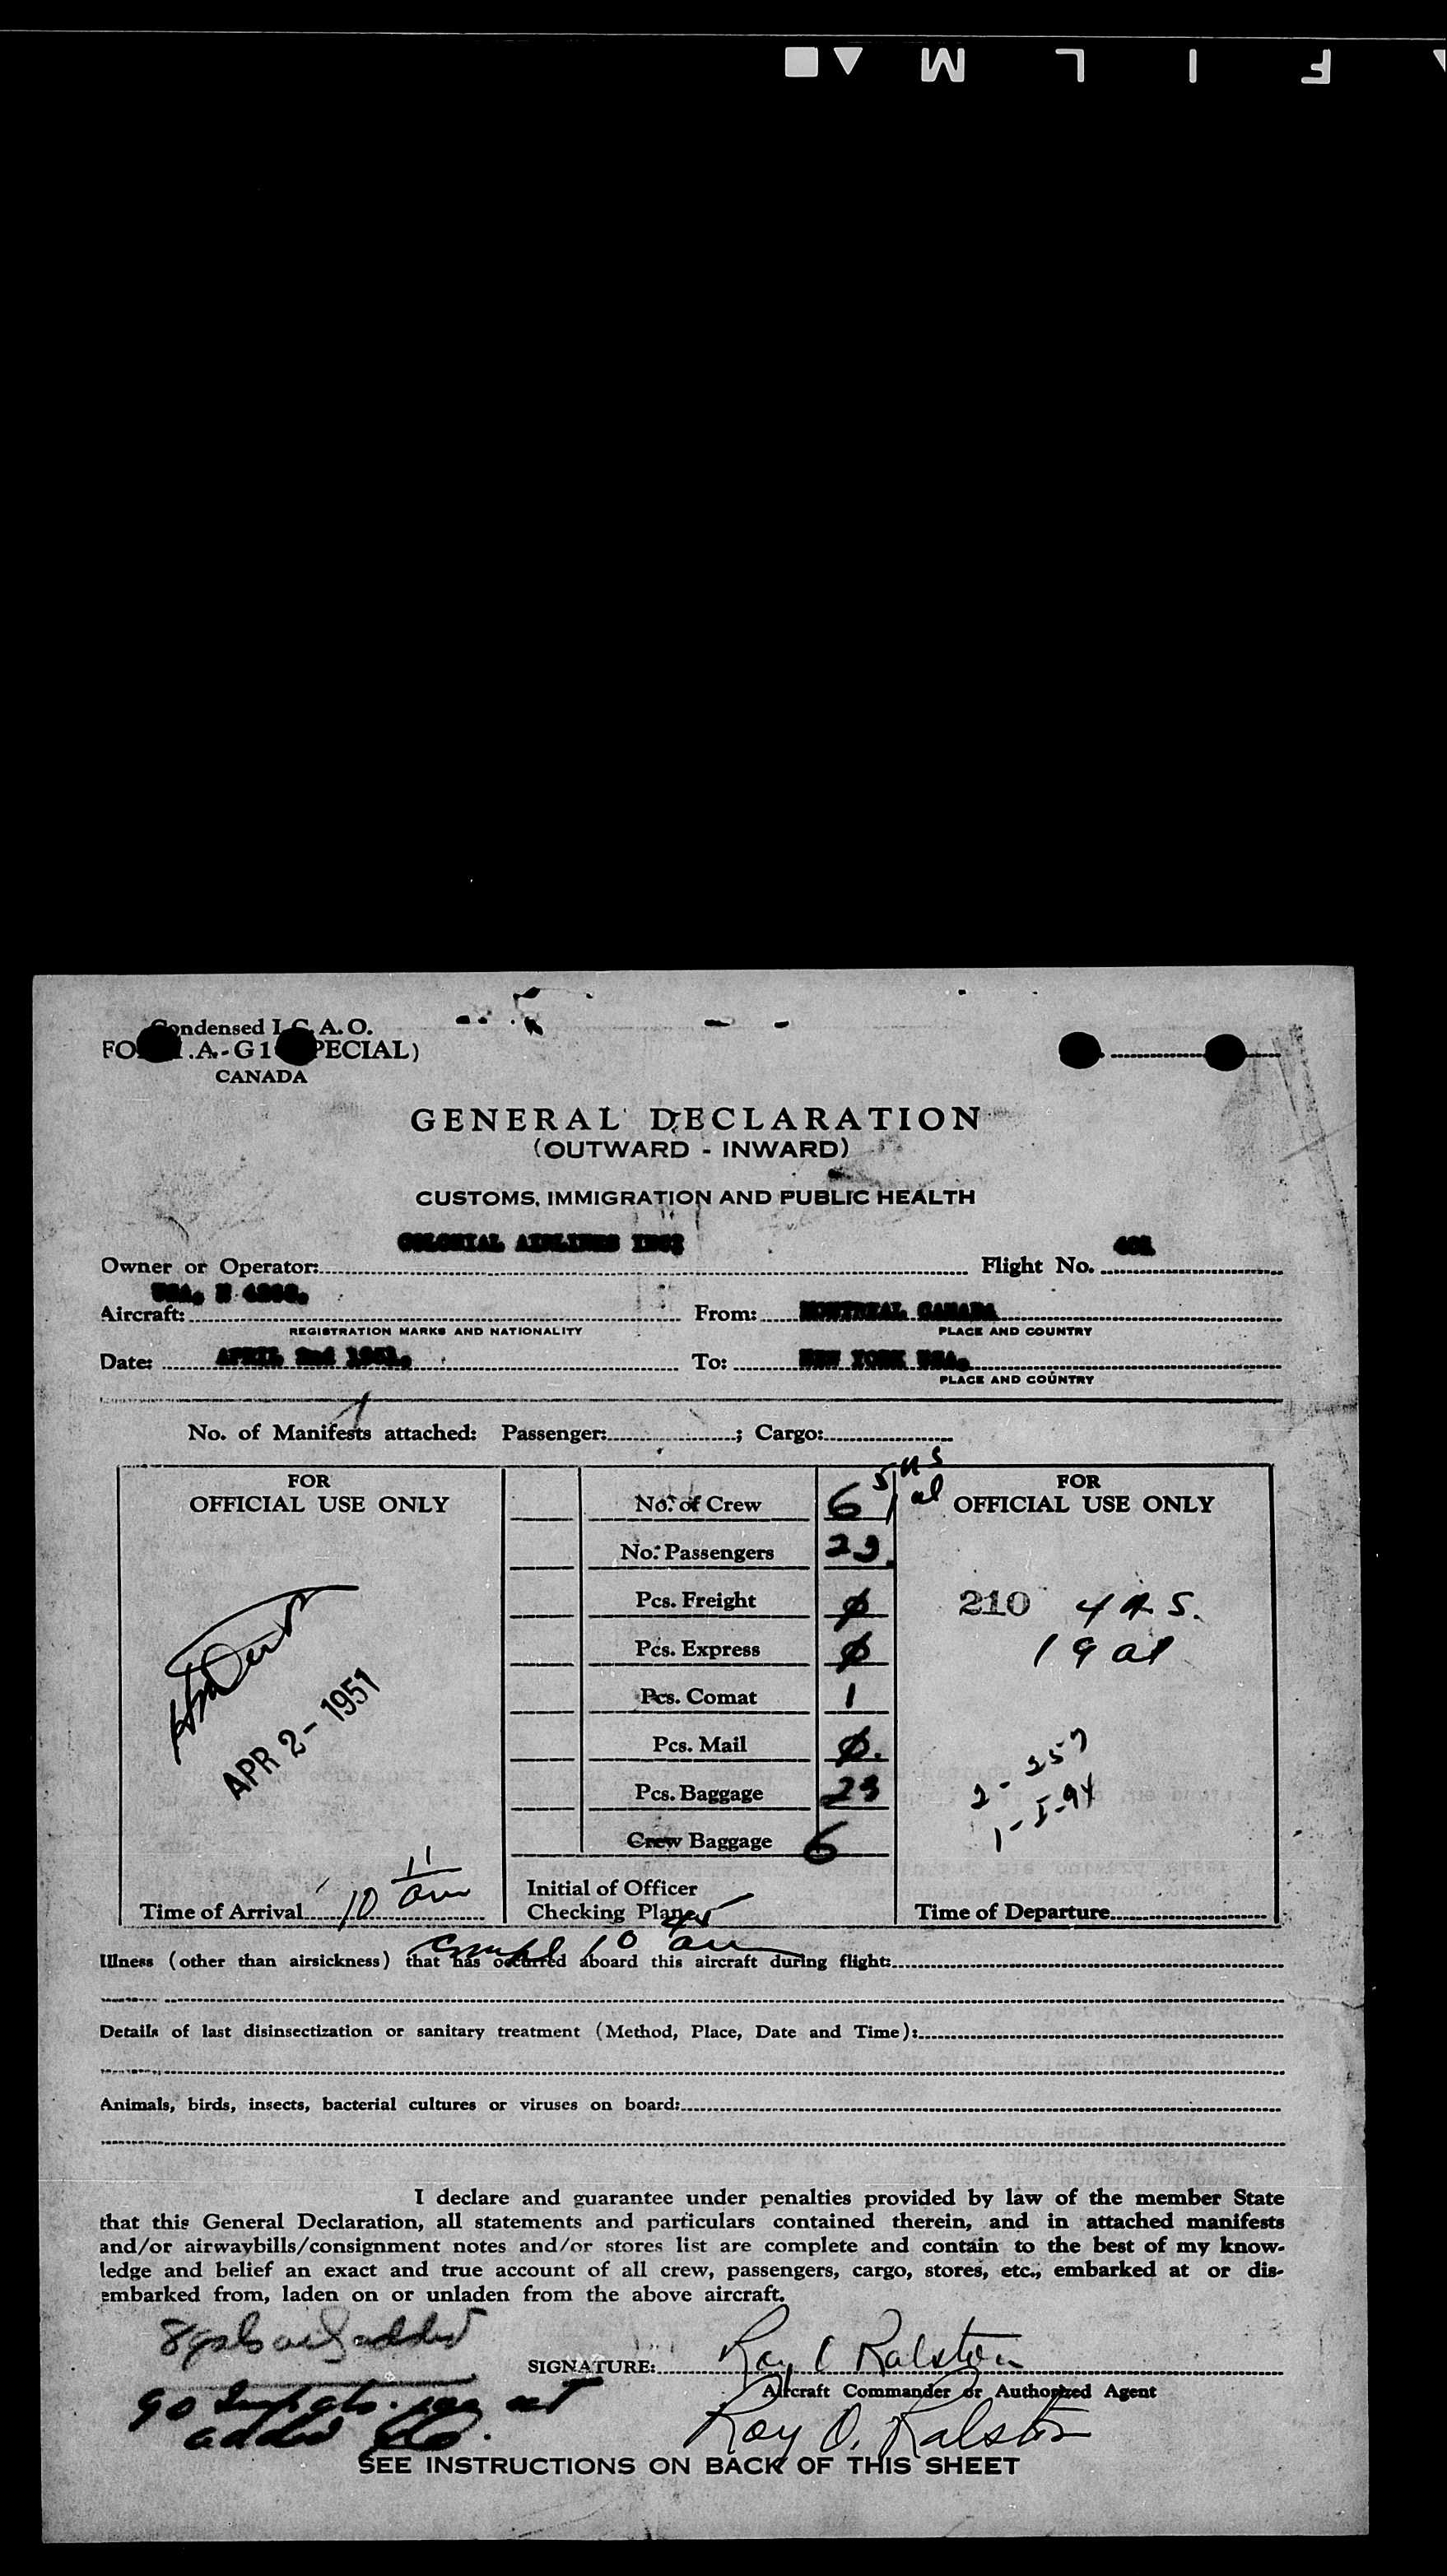 FILM
Condensed I.C.A.O.
FO .A.-G1 PECIAL)
CANADA
GENERAL DECLARATION
(OUTWARD - INWARD)
CUSTOMS, IMMIGRATION AND PUBLIC HEALTH
COLONIAL AIRLINES INC
Owner or Operator: Flight No.
USA. N
Aircraft: From: MONTREAL CANADA
REGISTRATION MARKS AND NATIONALITY PLACE AND COUNTRY
Date: APRIL 2nd 1951. To: NEW YORK USA.
PLACE AND COUNTRY
No. of Manifests attached: Passenger: ; Cargo:
FOR
OFFICIAL USE ONLY
APR 2 - 1951
Time of Arrival 10 11 am
No. of Crew 6 5 us 1 al
No. Passengers 23
Pcs. Freight ø
Pcs. Express ø
Pcs. Comat 1
Pcs. Mail ø.
Pcs. Baggage 23
Crew Baggage 6
Initial of Officer
Checking Plane
FOR
OFFICIAL USE ONLY
210 4 U.S.
19 al
2 - 257
1 - I-94
Time of Departure
10 am
Illness (other than airsickness) that has occurred aboard this aircraft during flight:
Details of last disinsectization or sanitary treatment (Method, Place, Date and Time):
Animals, birds, insects, bacterial cultures or viruses on board:
I declare and guarantee under penalties provided by law of the member State
that this General Declaration, all statements and particulars contained therein, and in attached manifests
and/or airwaybills/consignment notes and/or stores list are complete and contain to the best of my know-
ledge and belief an exact and true account of all crew, passengers, cargo, stores, etc., embarked at or dis-
embarked from, laden on or unladen from the above aircraft.
8 gals oil added
SIGNATURE: Roy O Ralston
Aircraft Commander or Authorized Agent
90 added
Roy O. Ralston
SEE INSTRUCTIONS ON BACK OF THIS SHEET